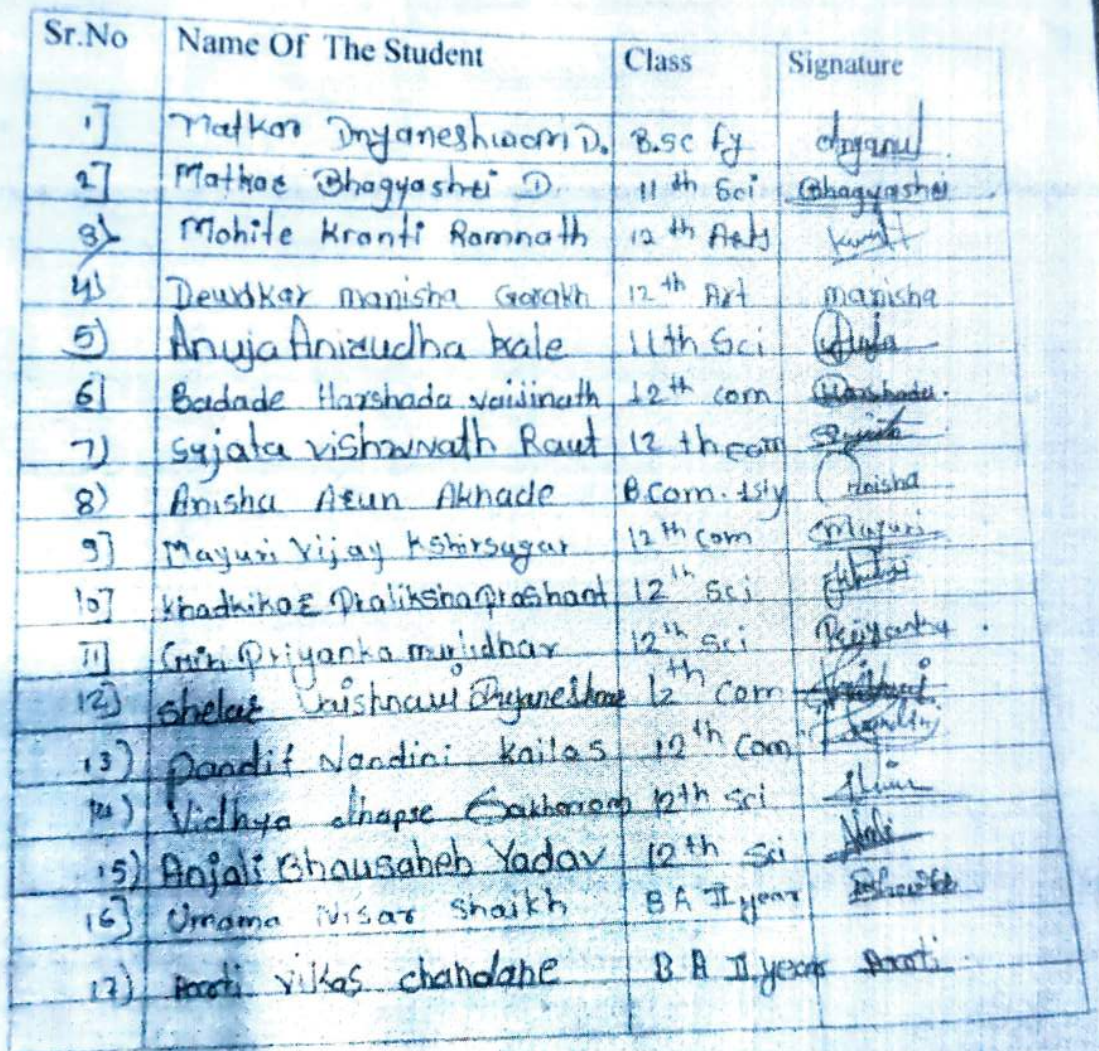 Sr.No Name Of The Student Class Signature
1] Matkar Dnyaneshwari D. B.sc fy
2] Matkar Bhagyashri D. 11th Sci Bhagyashri
3) Mohite Kranti Ramnath 12th Arts
4) Dewdkar manisha Gorakh 12th Art manisha
5) Anuja Anirudha kale 11th Sci Anuja
6] Badade Harshada vaijinath 12th com Harshada.
7) Sujata vishwnath Raut 12 th com
8) Anisha Arun Akhade B.Com. 1st y Anisha
9] Mayuri Vijay Kshirsagar 12th com Mayuri
10] Khadkikar Pratiksha prashant 12th Sci
11] Giri Priyanka murlidhar 12th Sci Priyanka
12) Shelar Vaishnavi Dnyaneshwar 12th Com
13) Pandit Nandini Kailas 12th Com
14) Vidhya dhapse Sakharam 12th Sci
15) Anjali Bhausaheb Yadav 12th Sci
16] Umama Nisar Shaikh B A II year
17) Aarti vikas chandane B A II year Aarti